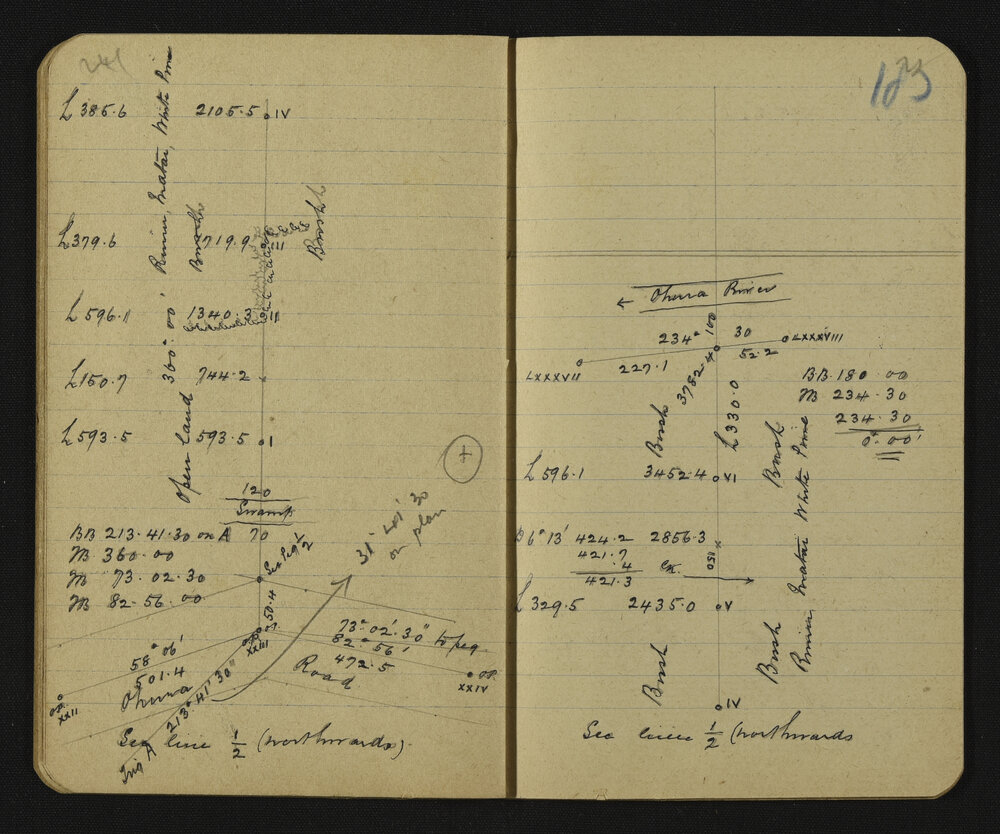 241
L 385.6 2105.5 IV
Rimu, Matai, White Pine
L 379.6 1719.9 III
Bush
Bush
L 596.1 1340.3 II
360° 00'
L 150.7 744.2
L 593.5 593.5 I
Open land
+
120
Swamp
70
BB 213.41.30 on A
JB 360.00
JB 73.02.30
JB 82.56.00
Sec Peg 1/2
31° 41' 30
on plan
50.4
XXIII
73° 02' 30" to peg
82° 56'
472.5
Road
XXIV
58° 06'
501.4
Ohura
213° 41' 30"
XXII
Trig A
Sec line 1/2 (northwards).
183
← Ohura River
100
234° 30
LXXXVII 227.1 52.2 LXXXVIII
3782.4
L 330.0
BB 180.00
JB 234.30
234.30
0° 00'
Bush
Bush
Rimu, Matai White Pine
L 596.1 3452.4 VI
6° 13' 424.2 2856.3
421.7
.4
421.3
150
L 329.5 2435.0 V
Bush
Bush
IV
Sec line 1/2 (northwards